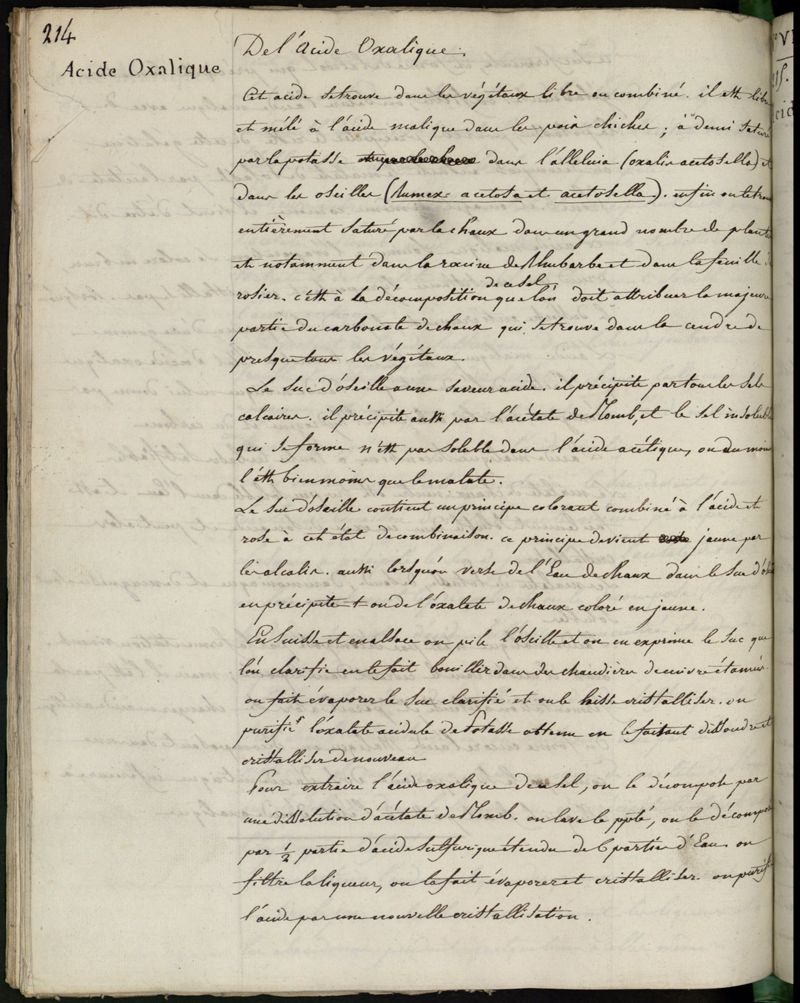 214
Acide Oxalique
De l'acide Oxalique.
Cet acide se trouve dans les végétaux libre ou combiné. il est libre
et mélé à l'acide malique dans les pois chiches ; à demi saturé
par la potasse dans l'alleluia (oxalis acetosella) et
dans les oseilles (Rumex acetosa et acetosella). enfin on le trouve
entièrement saturé par la chaux dans un grand nombre de plantes
et notamment dans la racine de Rhubarbe et dans la feuille de
rosier. c'est à la décomposition de ce sel que l'on doit attribuer la majeure
partie du carbonate de chaux qui se trouve dans la cendre de
presque tous les végétaux.
Le suc d'oseille a une saveur acide. il précipite par tous les sels
calcaires. il précipite aussi par l'acétate de Plomb, et le sel insoluble
qui se forme n'est pas soluble dans l'acide acétique, ou du moins
l'est bien moins que le malate.
Le suc d'oseille contient un principe colorant combiné à l'acide et
rose à cet état de combinaison. ce principe devient jaune par
les alcalis. aussi lorsqu'on verse de l'Eau de chaux dans le suc d'oseille
en précipite t on de l'oxalate de chaux coloré en jaune.
En Suisse et en alsace on pile l'oseille et on en exprime le suc que
l'on clarifie en le fait bouillir dans des chaudières de cuivre étamées
on fait évaporer le suc clarifié et on le laisse cristalliser. on
purifie l'oxalate acidule de Potasse obtenu en le faisant dissoudre et
cristalliser de nouveau
Pour extraire l'acide oxalique de ce sel, on le décompose par
une dissolution d'acétate de Plomb. on lave le ppté, on le décompose
par 1/2 partie d'acide sulfurique étendu de 6 parties d'Eau. on
filtre la liqueur, on la fait évaporer et cristalliser. on purifie
l'acide par une nouvelle cristallisation.